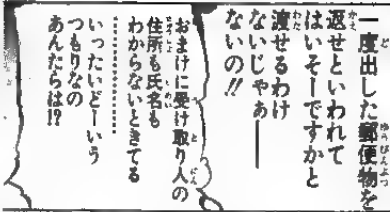 一度出した郵便物を
返せといわれて
はいそーですかと
渡せるわけ
ないじゃぁ――
ないの!!
おまけに受け取り人の
住所も氏名も
わからないときてる
………………
いったいどーいう
つもりなの
あんたらは!?